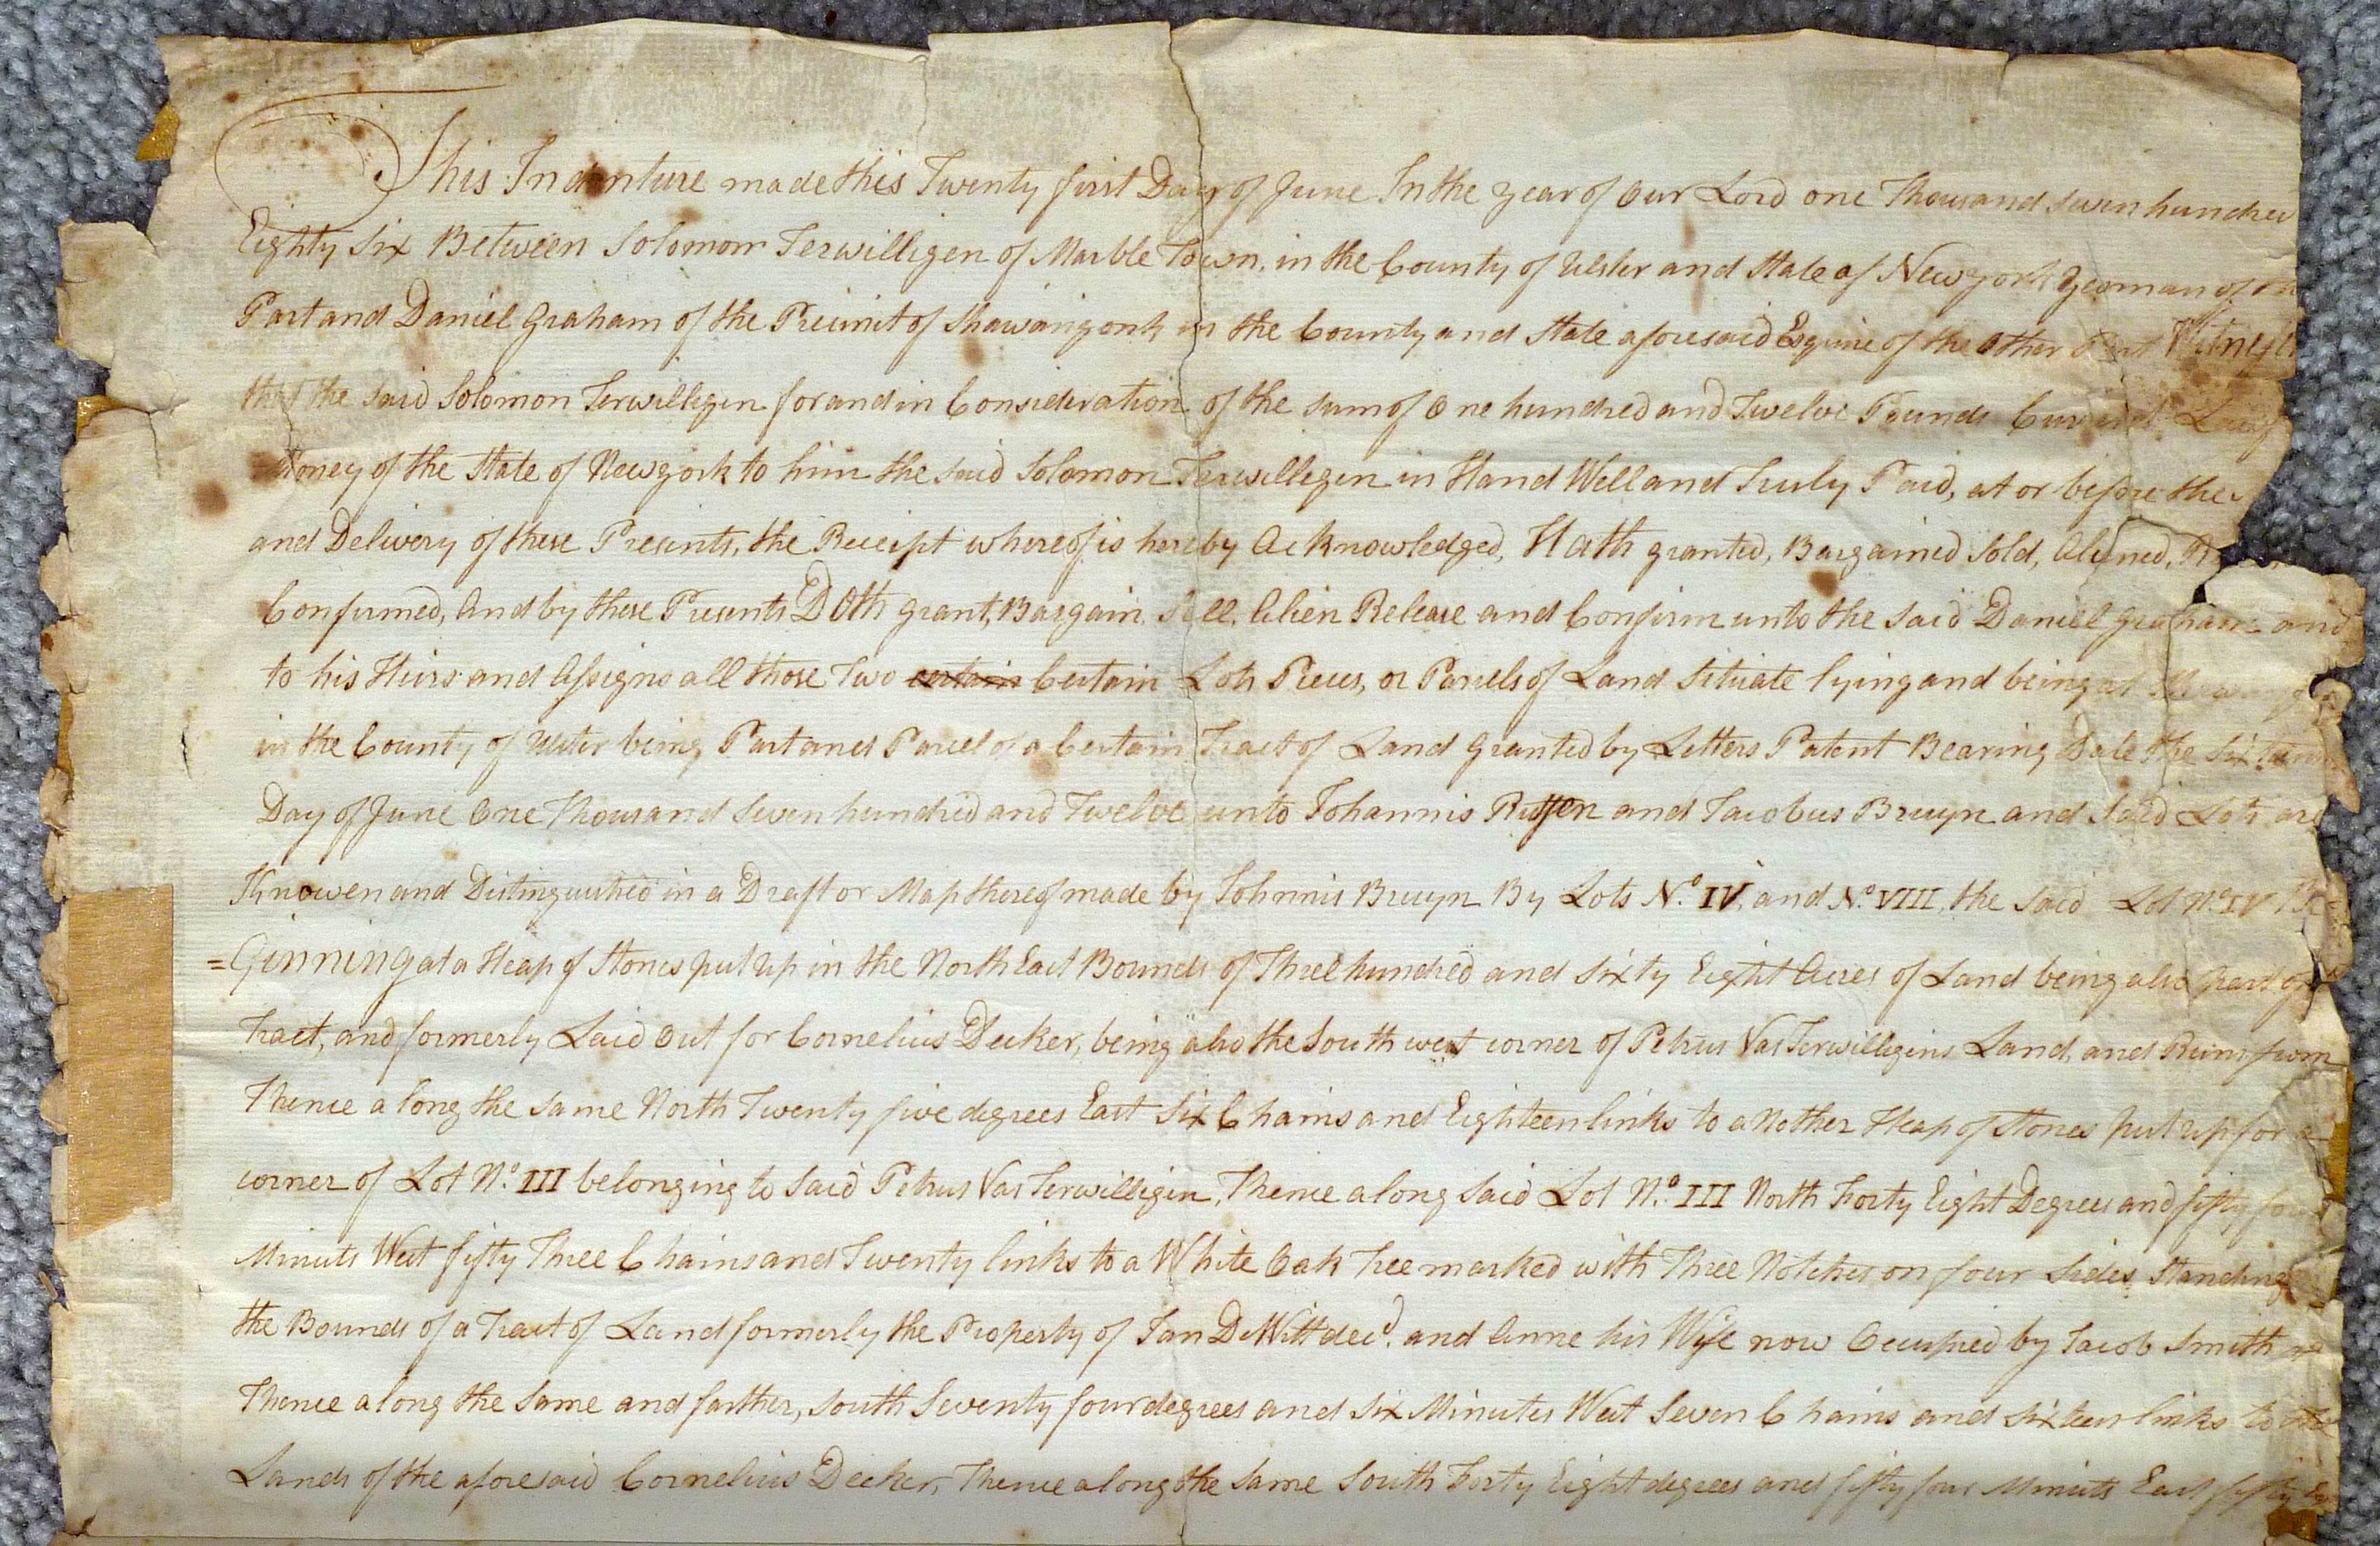 This Indenture made this Twenty first Day of June In the year of Our Lord one Thousand seven hundred
Eighty Six Between Solomon Terwilligen of Marble Town, in the County of Ulster and State of New york yeoman of
Part and Daniel Graham of the Precinct of Shawangonk in the County and State aforesaid Esquire of the Other Part
that the said Solomon Terwilligen for and in Consideration of the sum of One hundred and Twelve Pounds Current
Money of the State of Newyork to him the said Solomon Terwillegen in Hand Well and Truly Paid, at or before the
and Delivery of these Presents, the Receipt whereof is hereby Acknowledged, Hath granted, Bargained Sold, Aliened,
Confirmed, And by these Presents DOth grant, Bargain Sell, Alien Release and Confirm unto the Said Daniel Graham and
to his Heirs and Assigns all those Two certain Certain Lots Pieces, or Parcels of Land Situate lying and being at
in the County of Ulster being Part and Parcel of a Certain Tract of Land Granted by Letters Patent Bearing Date the
Day of June One Thousand Seven hundred and Twelve unto Johannis Rutsen and Jacobus Bruyn and Said Lots are
Knowen and Distinguished in a Draft or Map thereof made by Johnnis Bruyn By Lots No. IV, and No. VIII, the Said Lot No. IV Be
=Ginning at a Heap of Stones put up in the North East Bounds of Three hundred and Sixty Eight Acres of Land being also Part of
Tract, and formerly Laid Out for Cornelius Decker, being also the South west corner of Petrus Vas Terwilligins Land, and Runs from
Thence along the Same North Twenty five degrees East Six Chains and Eighteen links to a Nother Heap of Stones put up for a
corner of Lot No. III belonging to Said Petrus Vas Terwilligin, Thence along Said Lot No. III North Forty Eight Degrees and fifty four
Minuts West fifty Three Chains and Twenty links to a White Oak Tree marked with Three Notches on four Sides, Standing
the Bounds of a Tract of Land formerly the Property of Jan DeWitt decd. and Anne his Wife now Occupied by Jacob Smith
Thence along the Same and farther, South Seventy four degrees and Six Minutes West Seven Chains and Sixteen links to the
Lands of the aforesaid Cornelius Decker, Thence along the Same South Forty Eight degrees and fifty four Minuts East fifty